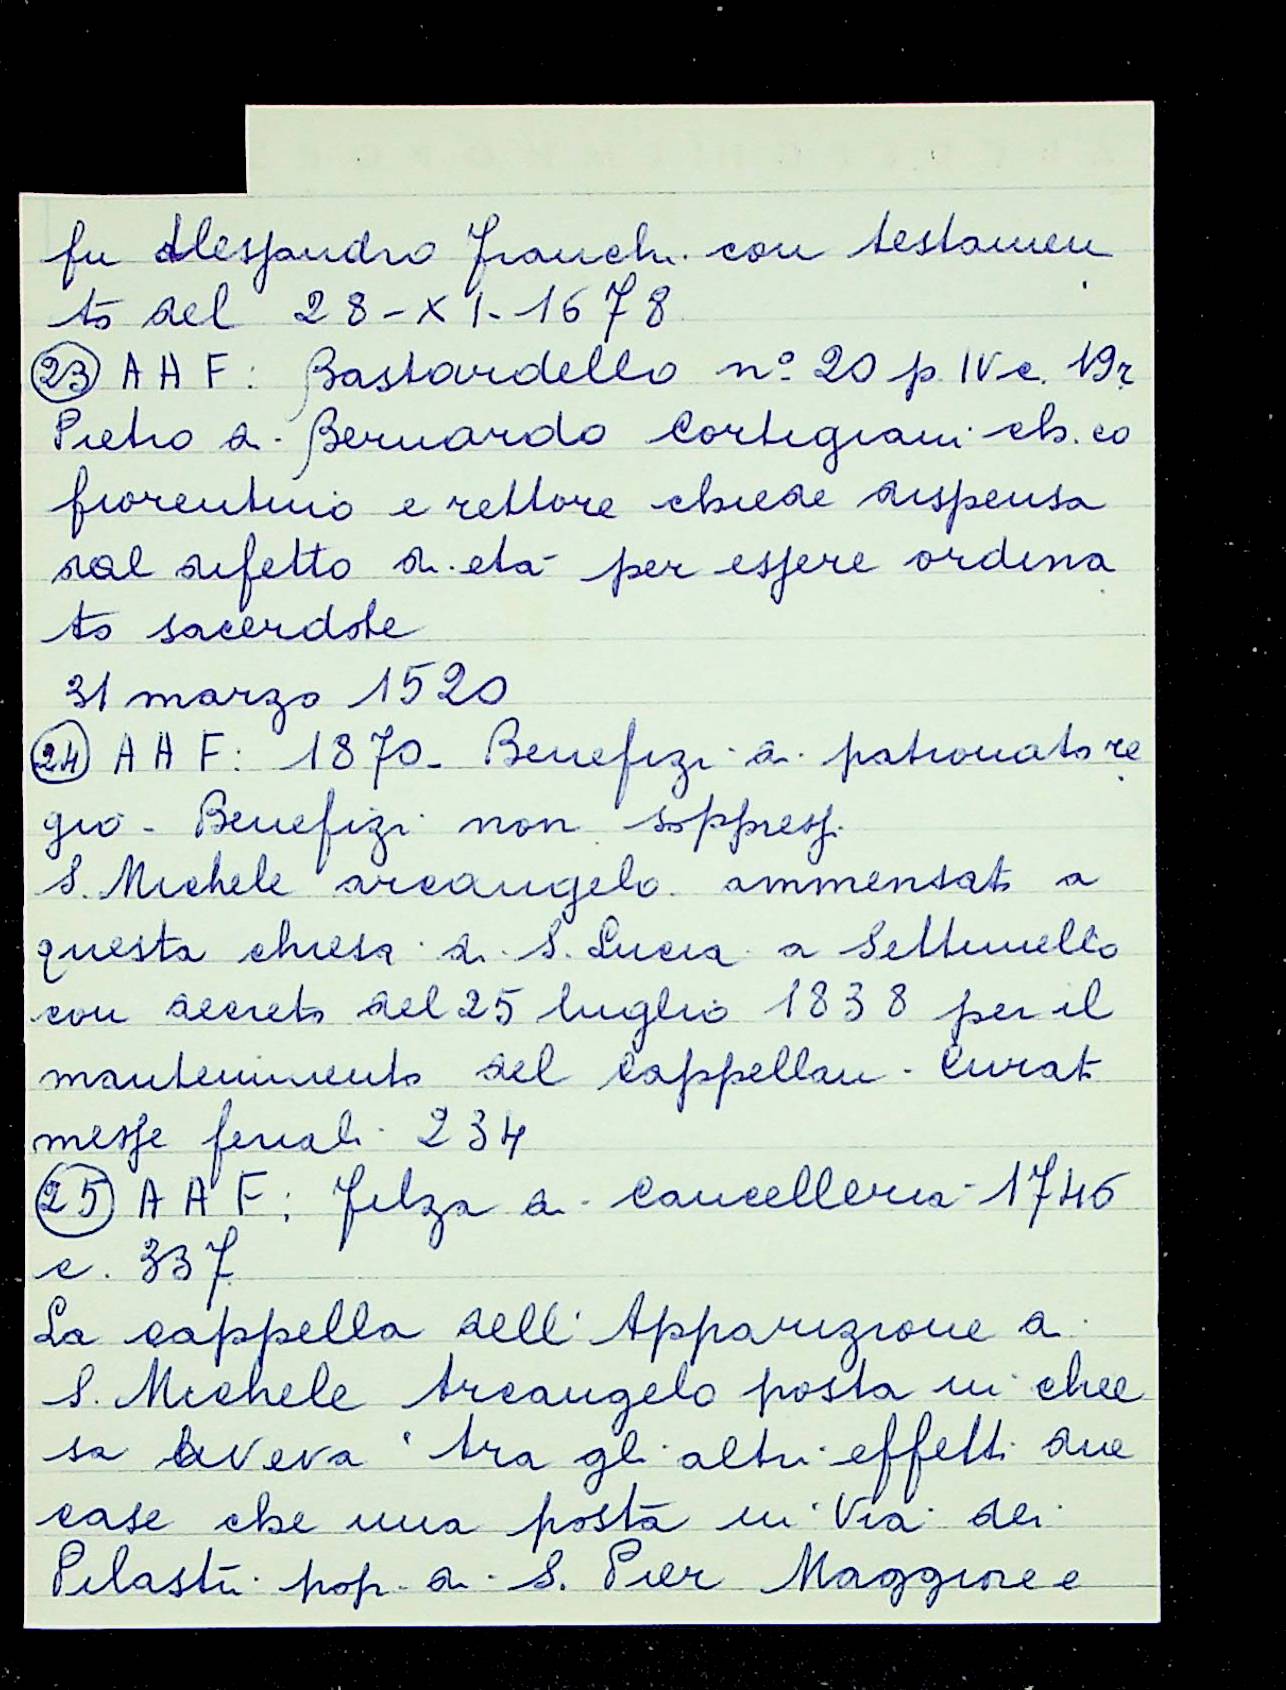 fu Alessandro Franchi con testamen
to del 28-XI-1678
23 AAF: Bastardello n° 20 p. IV c. 19r
Pietro di Bernardo Cortigiani ch.co
fiorentino e rettore chiede dispensa
dal difetto di età per essere ordina
to sacerdote
31 marzo 1520
24 AAF: 1870- Benefizi di patronato re
gio - Benefizi non soppressi
S. Michele arcangelo ammensato a
questa chiesa di S. Lucia a Settimello
con decreto del 25 luglio 1838 per il
mantenimento del Cappellan - Curato
messe feriali 234
25 AAF: Filza di Cancelleria 1746
c. 337
La cappella dell'Apparizione di
S. Michele Arcangelo posta in chie
sa aveva tra gli altri effetti due
case che una posta in Via dei
Pilastri pop. di S. Pier Maggiore e